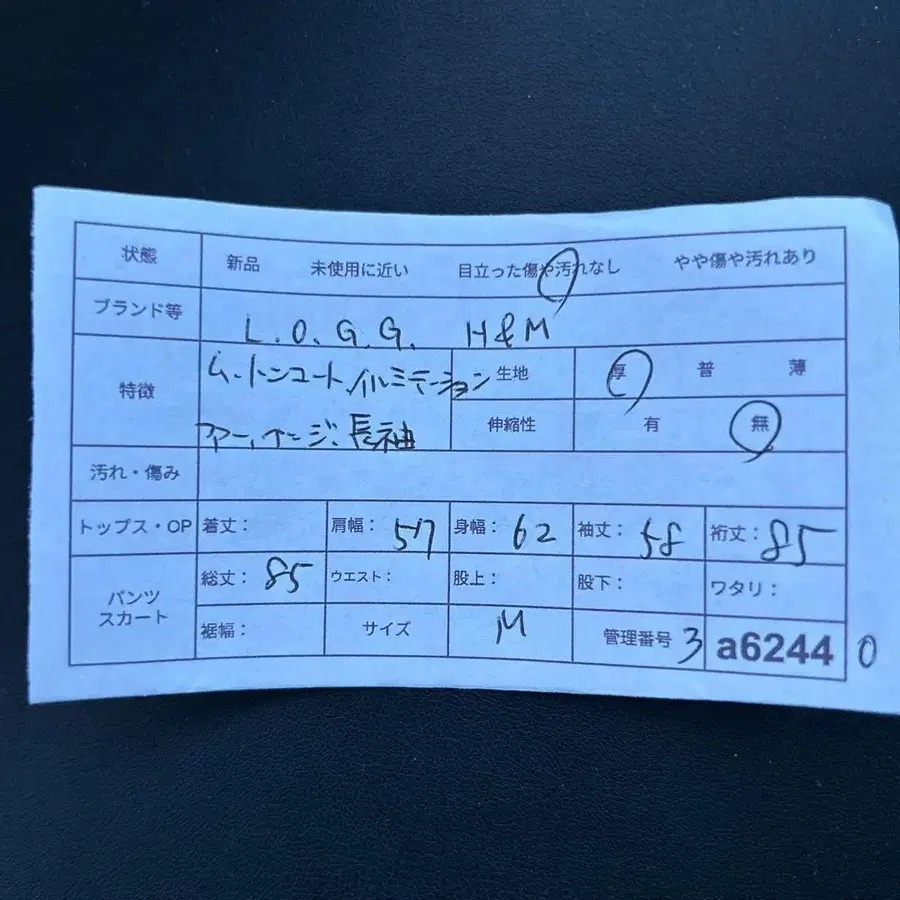 状態 新品 未使用に近い 目立った傷や汚れなし やや傷や汚れあり
ブランド等 L.O.G.G. H&M
特徴 ムートンコート、イルミテーション
ファー、イージ、長袖
生地 厚 普 薄
伸縮性 有 無
汚れ・傷み
トップス・OP 着丈: 肩幅: 57 身幅: 62 袖丈: 58 裄丈: 85
パンツ スカート
総丈: 85 ウエスト: 股上: 股下: ワタリ:
裾幅: サイズ M 管理番号 3 a6244 0